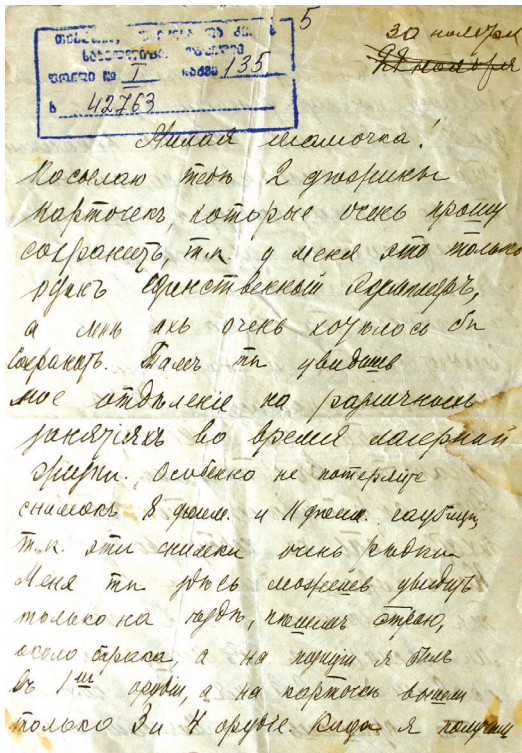 5
30 ноября
22 ноября
ფონდი № I საქმე 135
42763
Милая мамочка!
Посылаю тебѣ 2 дюжины
карточекъ, которые очень прошу
сохранить, т.к. у меня это только
одинъ единственный экземпляръ,
а мнѣ ихъ очень хотѣлось бы
сохранить. Тамъ ты увидишь
мое отдѣленіе на различныхъ
занятіяхъ во время лагерной
Особенно не потеряйте
снимокъ 8 дюйм. и 11 дюйм. гаубицъ,
т.к. эти снимки очень рѣдки.
Меня ты здѣсь можешь увидѣть
только на пѣшемъ строю,
около барака, а на я былъ
въ 1ой орудіи, а на карточкѣ вышли
только 3 и 4 орудіе. Когда я получу